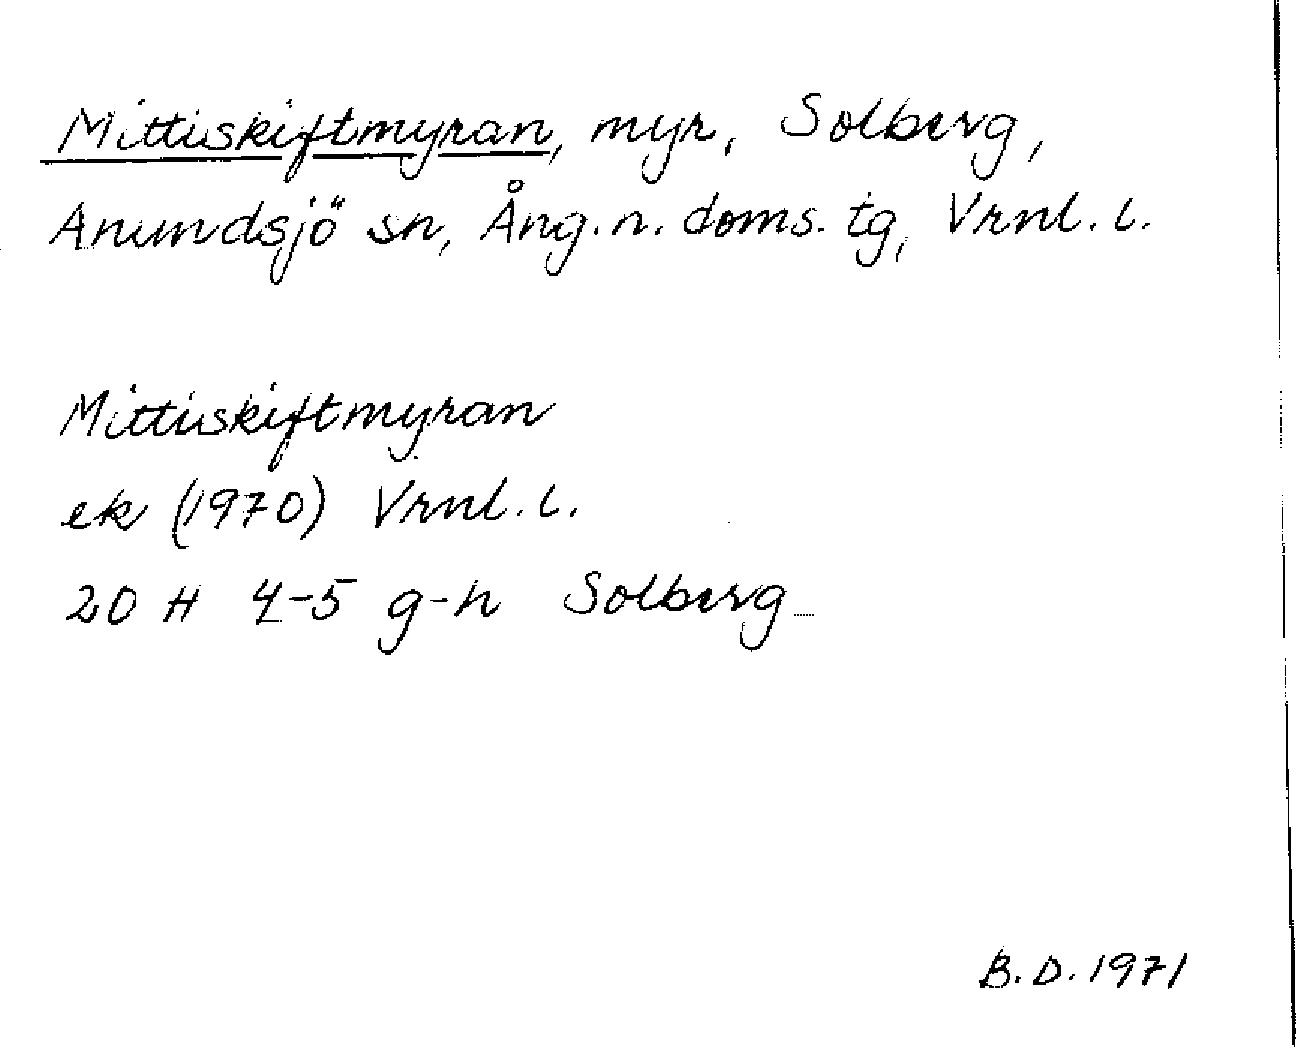 Mittiskiftmyran, myr, Solberg,
Anundsjö sn, Ång. n. doms. tg, Vrnl. l.
Mittiskiftmyran
ek (1970) Vrnl. l.
20 H 4-5 g-h Solberg
B.D. 1971